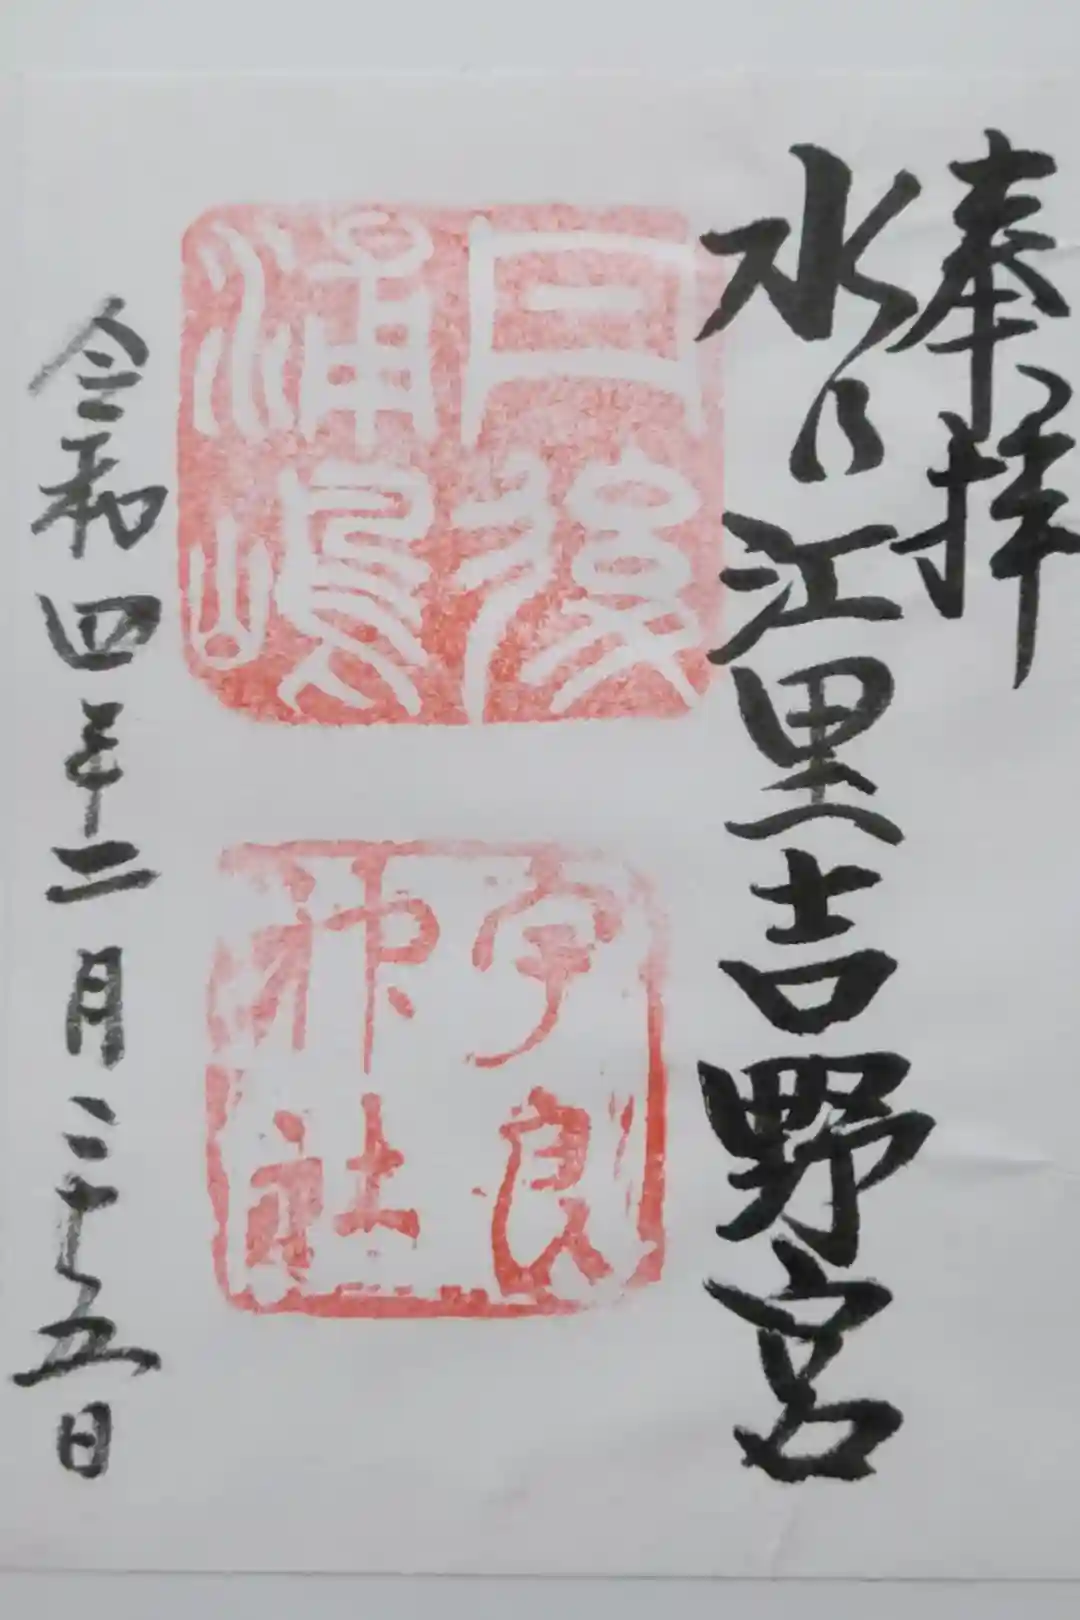 奉拝
水乃江里吉野宮
丹後
浦嶋
宇良
神社
令和四年二月二十五日